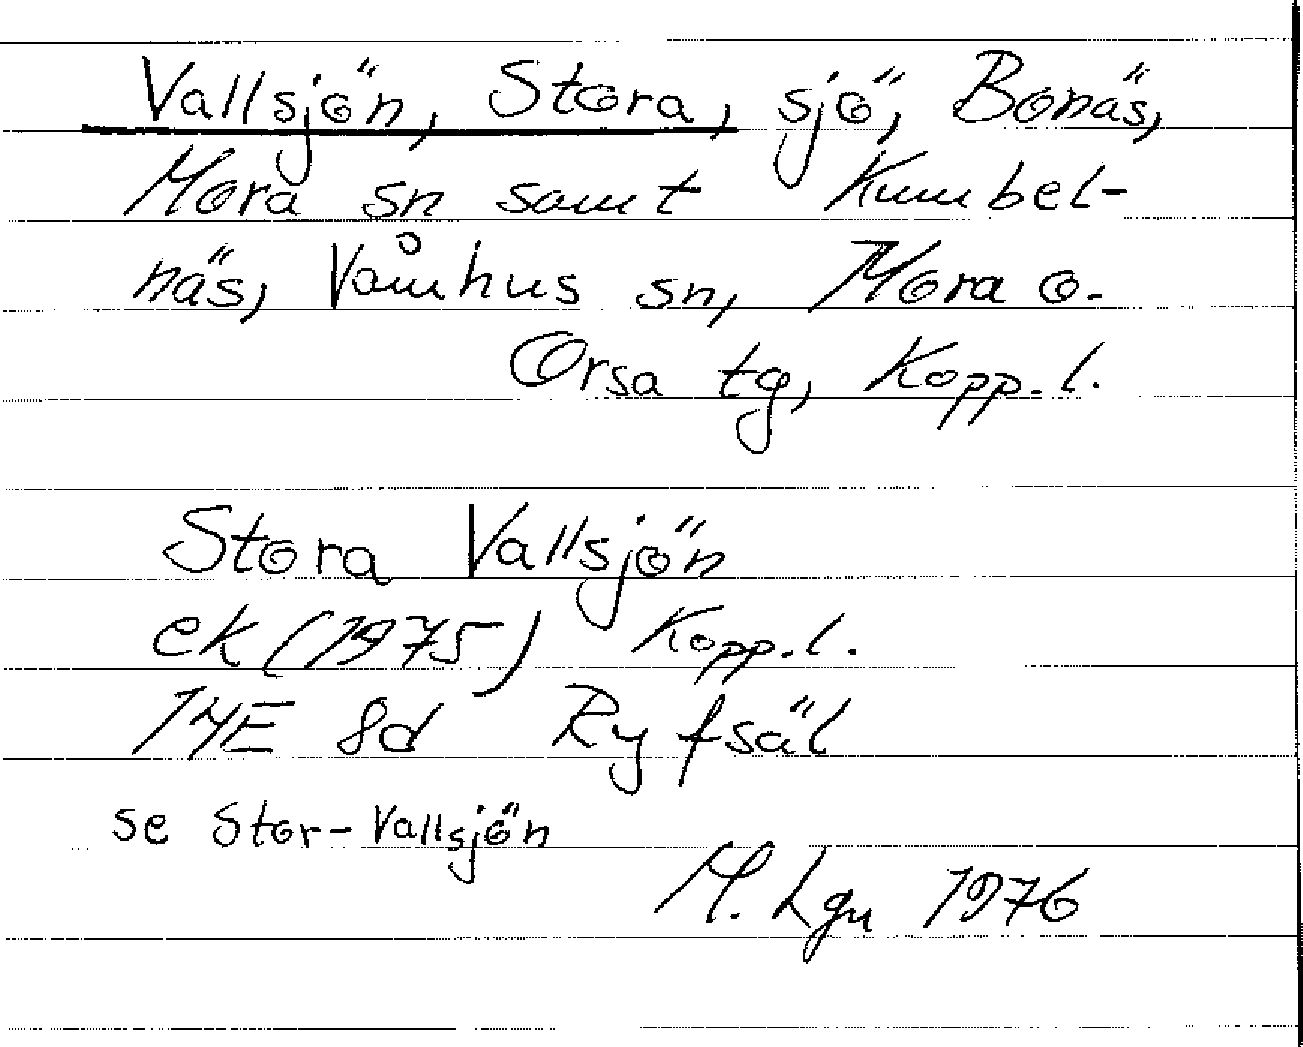 Vallsjön, Stora, sjö, Bonäs,
Mora sn samt Kumbel-
näs, Våmhus sn, Mora o.
Orsa tg, Kopp. l.
Stora Vallsjön
ek (1975) Kopp. l.
14E 8d Ryfsäl
se Stor-Vallsjön
M. Lgn 1976